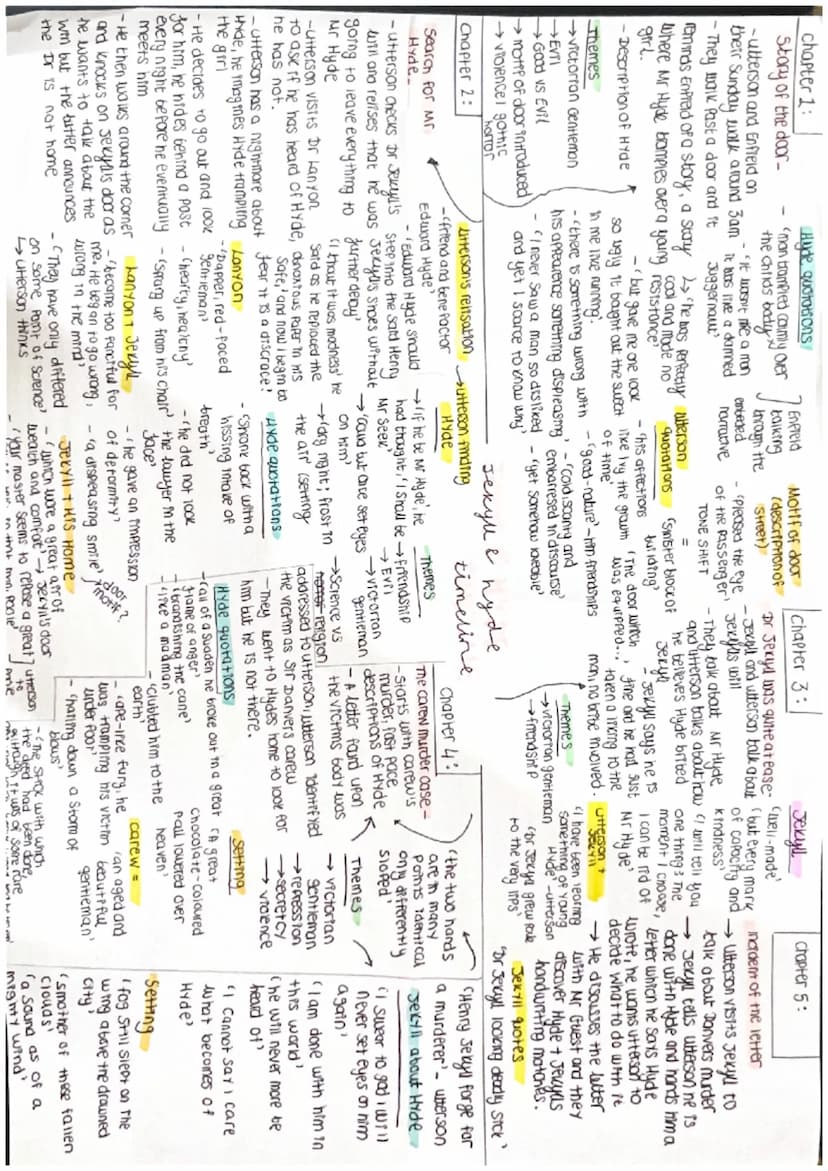 Jekyll & Hyde
timeline
Chapter 1:
Story of the door -
- Utterson and Enfield on
their Sunday walk around 3am
- They walk past a door and it
reminds Enfield of a story, a story
where Mr Hyde tramples over a young
girl.
- Description of Hyde
Themes
→ Victorian Gentleman
→ Evil
→ Good vs Evil
→ motif of door introduced
→ violence / gothic
horror
Hyde quotations
- 'man trampled calmly over
the child's body'
- 'it wasn't like a man
it was like a damned
Juggernaut'
↳ 'he was perfectly
cool and made no
resistance'
- 'but gave me one look
so ugly it bought out the sweat
in me like running.
- 'there is something wrong with
his appearence something displeasing'
- 'I never saw a man so disliked
and yet I scarce to know why'
Enfield
talking
through the
embeded
narrative
Utterson
quotations
- 'his affections
like ivy the growth
of time'
- 'good-nature' - him friendships
- 'cold, scanty and
embaressed in discourse'
- 'yet somehow loveable'
Motif of door
(description of
street)
- 'pleased the eye
of the passenger'
=
TONE SHIFT
'sinister block of
building'
'The door which
was equipped...'
Chapter 2:
Search for Mr
Hyde -
- Utterson checks Dr Jekyll's
will and relises that he was
going to leave everything to
Mr Hyde
- Utterson visits Dr Lanyon
to ask if he has heard of Hyde,
he has not.
- Utterson has a nightmare about
Hyde, he imagines Hyde trampling
the girl
- He decides to go out and look
for him, he hides behind a post
every night before he eventually
meets him
- He then walks around the corner
and knocks on Jekyll's door as
he wants to talk about the
will but the butler announces
the Dr is not home
Utterson's relisation
- 'friend and benefactor
Edward Hyde'
- 'Edward Hyde should
step into the said Henry
Jekyll's shoes without
further delay'
'I thout it was madness' he
said as he replaced the
obnoxious paper in his
safe, 'and now I begin to
fear it is a disgrace'.
Lanyon
- 'Dapper, red-faced
gentleman'
- 'hearty, healthy'
- 'sprung up from his chair'
Lanyon + Jekyll
- 'became too fanciful for
me. He began to go wrong,
wrong in the mind'
- 'They have only differed
on some point of science'
↳ Utterson thinks
→ Utterson finding
Hyde
→ 'If he be Mr Hyde', he
had thought, 'I should be
Mr Seek'
→ 'could but once set eyes
on him'
→ 'dry night, frost in
the air' (setting
Hyde quotations
- 'shrank back with a
hissing intake of
breath'
- 'he did not look
the lawyer in the
face'
- 'he gave an impression
of deformity'
- 'a displeasing smile'
Jekyll + His Home
- 'which wore a great air of
wealth and comfort' → Jekyll's door
↳ door
motif?
- 'your master seems to repose a great
Utterson
to
Themes
→ Friendship
→ Evil
→ Victorian
gentleman
→ Science vs
religion
Chapter 3:
Dr Jekyll was quite at ease:
- Jekyll and Utterson talk about
Jekyll's will
- They talk about Mr Hyde
and Utterson talks about how
he believes Hyde bribed
Jekyll
- Jekyll says he is
fine and he has just
taken a liking to the
man, no bribe involved.
Themes
→ Victorian gentleman
→ friendship
Jekyll
'well-made'
'but every mark
of capacity and
kindness'
'I will tell you
one thing: the
moment I choose,
I can be rid of
Mr Hyde'
Utterson +
Jekyll
'I have been learning
something of young
Hyde' - Utterson
'Dr Jekyll grew pale
to the very lips'
Chapter 4:
The carew murder case -
- Starts with carew's
murder, fast pace
descriptions of Hyde
- A letter found upon
the victim's body was
addressed to utterson, utterson identifyed
the victim as Sir Danvers carew
- They went to Hyde's home to look for
him but he is not there.
Themes
→ Victorian
gentleman
→ repression
→ secrecy
→ violence
Hyde quotations
- 'all of a sudden he broke out in a great
flame of anger'
- 'brandishing the cane'
- 'like a madman'
- 'clubbed him to the
earth'
- 'ape-like fury, he
was trampling his victim
underfoot'
- 'hailing down a storm of
blows'
- 'The stick with which
the deed had been done,
although it was of some rare
Setting
'A great
chocolate-coloured
pall lowered over
heaven'
carew =
'an aged and
beautiful
gentleman'
Chapter 5:
Incident of the letter
→ Utterson visits Jekyll to
talk about Danvers murder
→ Jekyll tells Utterson he is
done with Hyde and hands him a
letter which he says Hyde
wrote, he wants utterson to
decide what to do with it
→ He discusses the letter
with Mr Guest and they
discover Hyde + Jekyll's
handwriting matches.
Jekyll quotes
'Dr Jekyll looking deadly sick'
'the two hands
are in many
points identical
only differently
sloped'
'Henry Jekyll forge for
a murderer' - Utterson
Jekyll about Hyde
'I swear to god I will
never set eyes on him
again'
'I am done with him in
this world'
'he will never more be
heard of'
'I cannot say I care
what becomes of
Hyde'
Setting
'fog still slept on the
wing above the drowned
city'
'smother of these fallen
clouds'
'a sound as of a
mighty wind'